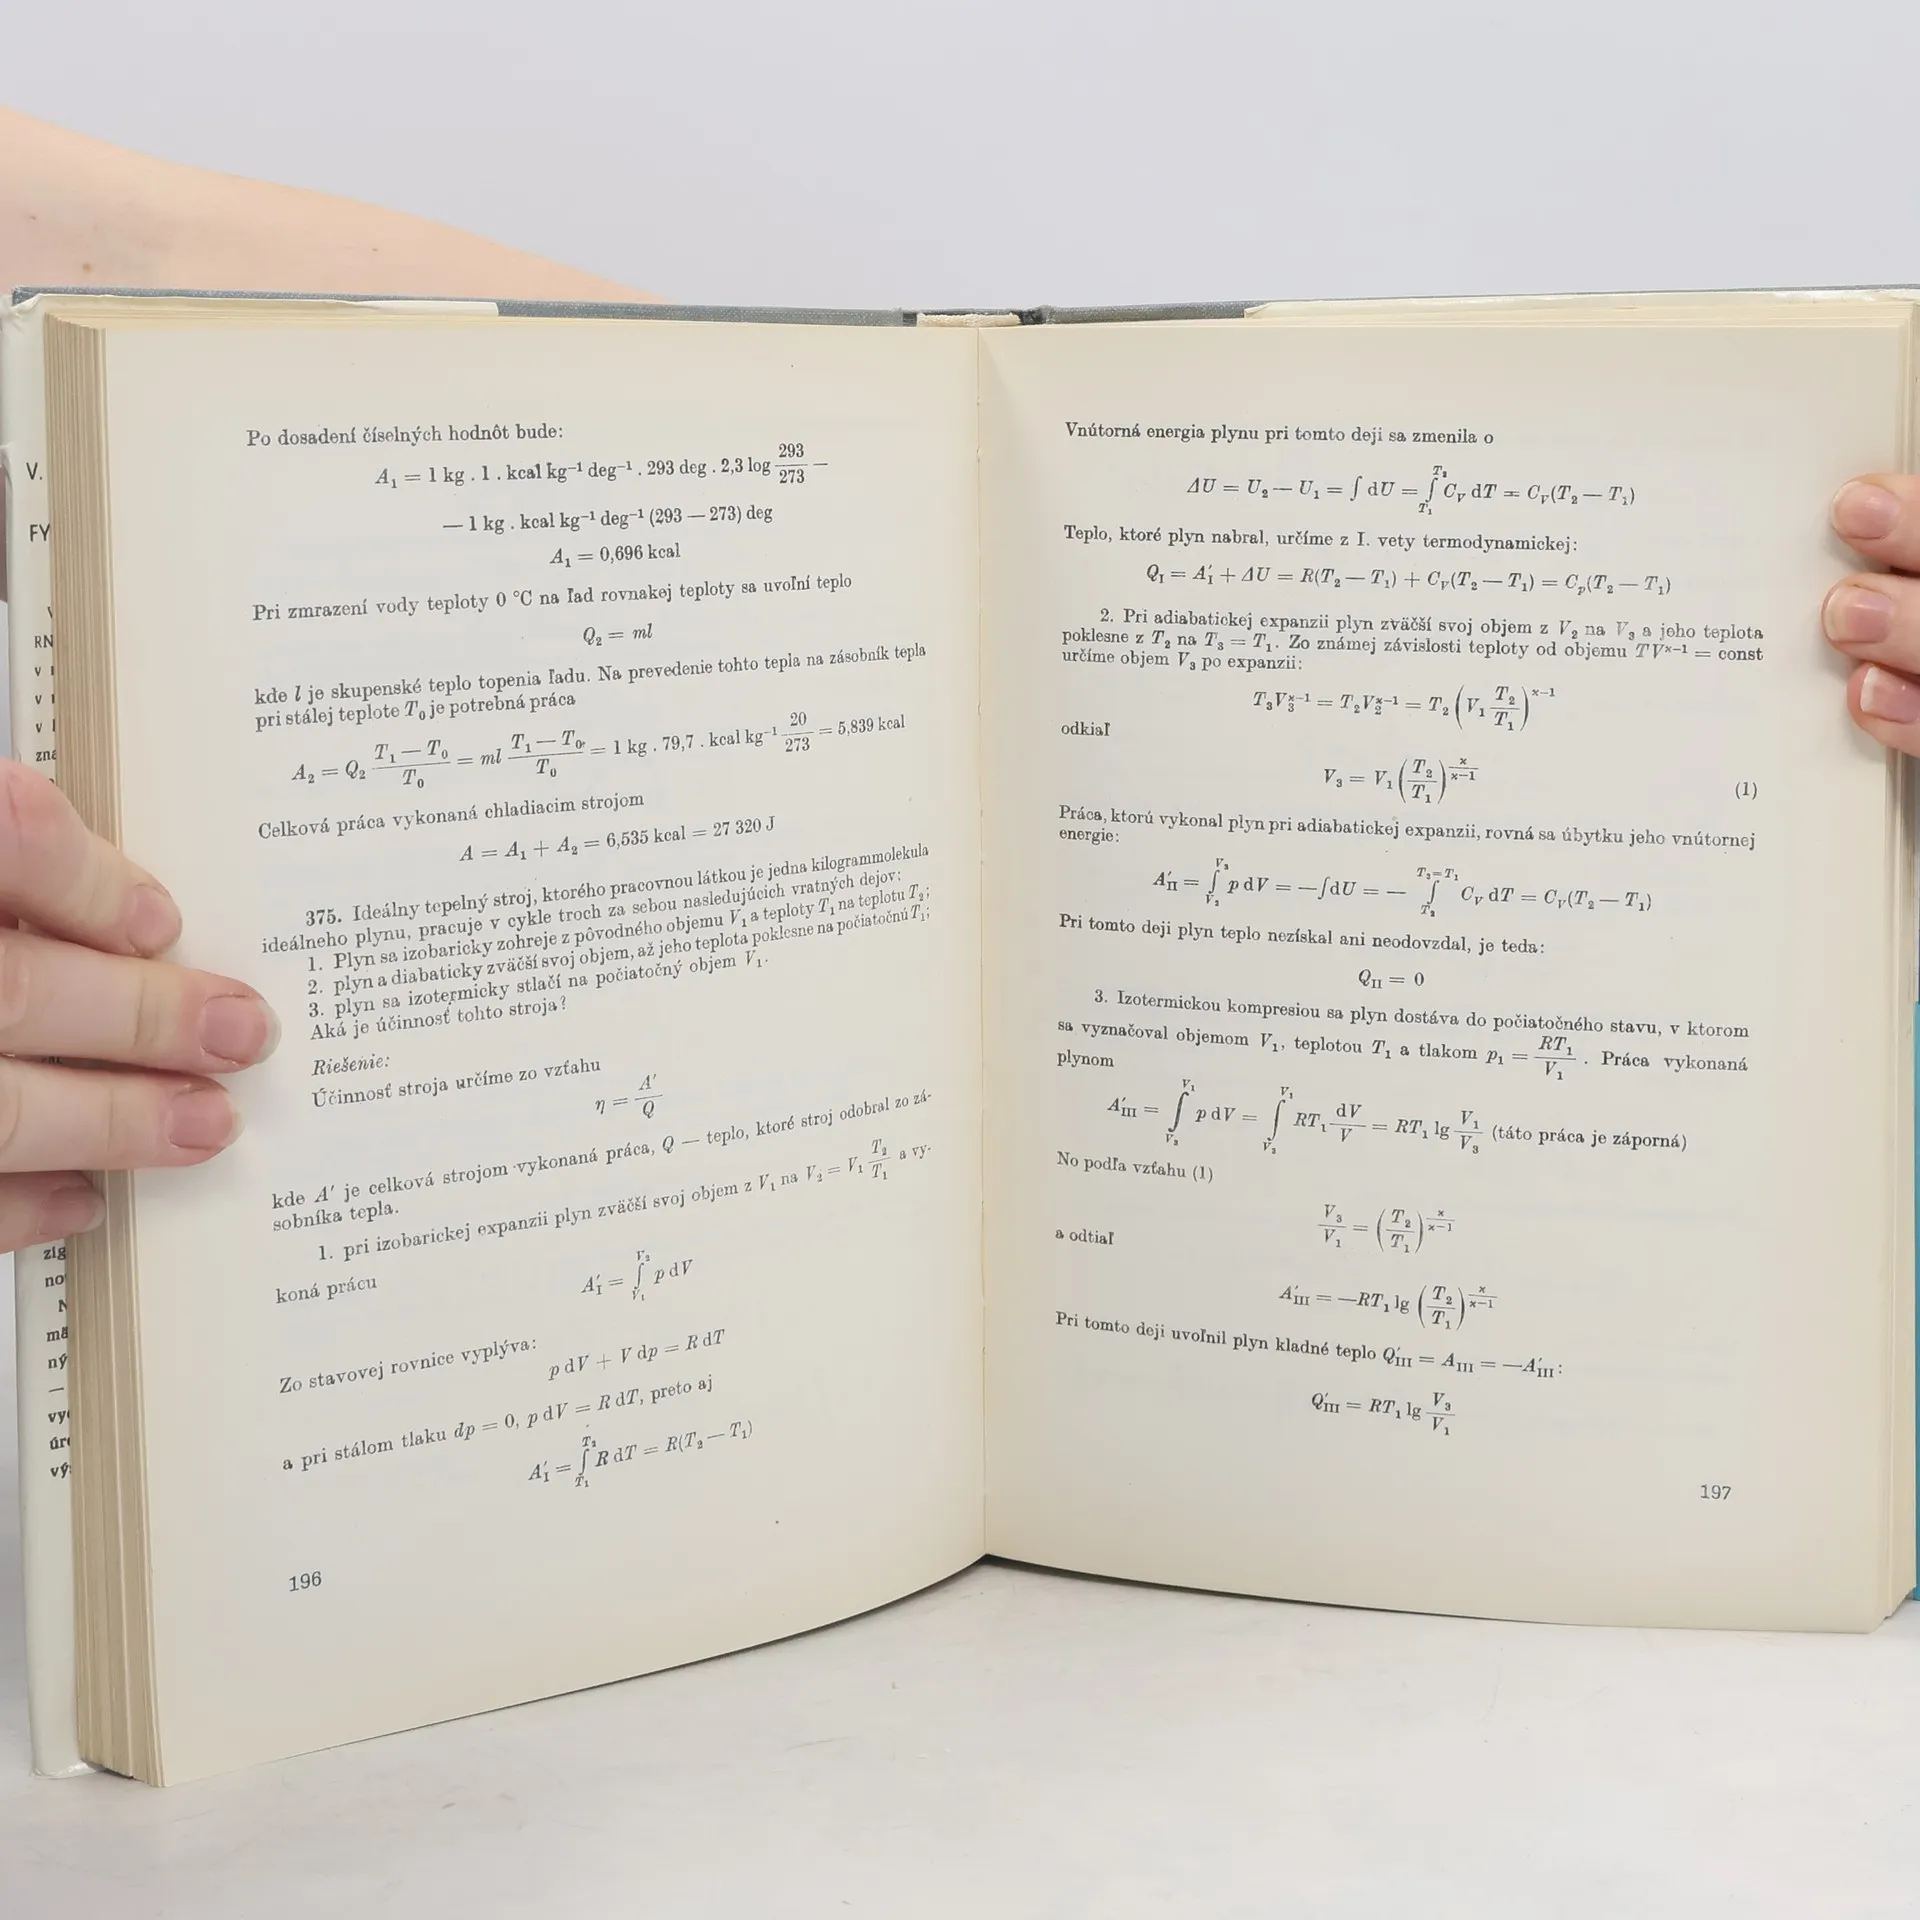 V.
FY
RN
zna
zig
Po dosadení číselných hodnôt bude:
A₁ = 1 kg . 1 . kcal kg⁻¹ deg⁻¹ . 293 deg . 2,3 log 293/273 —
— 1 kg . kcal kg⁻¹ deg⁻¹ (293 — 273) deg
A₁ = 0,696 kcal
Pri zmrazení vody teploty 0 °C na ľad rovnakej teploty sa uvoľní teplo
Q₂ = ml
kde l je skupenské teplo topenia ľadu. Na prevedenie tohto tepla na zásobník tepla
pri stálej teplote T₀ je potrebná práca
A₂ = Q₂ (T₁ — T₀)/T₀ = ml (T₁ — T₀)/T₀ = 1 kg . 79,7 . kcal kg⁻¹ 20/273 = 5,839 kcal
Celková práca vykonaná chladiacim strojom
A = A₁ + A₂ = 6,535 kcal = 27 320 J
375. Ideálny tepelný stroj, ktorého pracovnou látkou je jedna kilogrammolekula
ideálneho plynu, pracuje v cykle troch za sebou nasledujúcich vratných dejov:
1. Plyn sa izobaricky zohreje z pôvodného objemu V₁ a teploty T₁ na teplotu T₂;
2. plyn a diabaticky zväčší svoj objem, až jeho teplota poklesne na počiatočnú T₁;
3. plyn sa izotermicky stlačí na počiatočný objem V₁.
Aká je účinnosť tohto stroja?
Riešenie:
Účinnosť stroja určíme zo vzťahu
η = A′/Q
kde A′ je celková strojom vykonaná práca, Q — teplo, ktoré stroj odobral zo zá-
sobníka tepla.
1. pri izobarickej expanzii plyn zväčší svoj objem z V₁ na V₂ = V₁ T₂/T₁ a vy-
koná prácu
A′_I = ∫_{V₁}^{V₂} p dV
Zo stavovej rovnice vyplýva:
p dV + V dp = R dT
a pri stálom tlaku dp = 0, p dV = R dT, preto aj
A′_I = ∫_{T₁}^{T₂} R dT = R(T₂ — T₁)
196
Vnútorná energia plynu pri tomto deji sa zmenila o
ΔU = U₂ — U₁ = ∫ dU = ∫_{T₁}^{T₂} C_V dT = C_V(T₂ — T₁)
Teplo, ktoré plyn nabral, určíme z I. vety termodynamickej:
Q_I = A′_I + ΔU = R(T₂ — T₁) + C_V(T₂ — T₁) = C_p(T₂ — T₁)
2. Pri adiabatickej expanzii plyn zväčší svoj objem z V₂ na V₃ a jeho teplota
poklesne z T₂ na T₃ = T₁. Zo známej závislosti teploty od objemu TV^{κ—1} = const
určíme objem V₃ po expanzii:
T₃V₃^{κ—1} = T₂V₂^{κ—1} = T₂ (V₁ T₂/T₁)^{κ—1}
odkiaľ
V₃ = V₁ (T₂/T₁)^{κ/(κ—1)} (1)
Práca, ktorú vykonal plyn pri adiabatickej expanzii, rovná sa úbytku jeho vnútornej
energie:
A′_II = ∫_{V₂}^{V₃} p dV = —∫dU = — ∫_{T₂}^{T₃=T₁} C_V dT = C_V(T₂ — T₁)
Pri tomto deji plyn teplo nezískal ani neodovzdal, je teda:
Q_II = 0
3. Izotermickou kompresiou sa plyn dostáva do počiatočného stavu, v ktorom
sa vyznačoval objemom V₁, teplotou T₁ a tlakom p₁ = RT₁/V₁ . Práca vykonaná
plynom
A′_III = ∫_{V₃}^{V₁} p dV = ∫_{V₃}^{V₁} RT₁ dV/V = RT₁ lg V₁/V₃ (táto práca je záporná)
No podľa vzťahu (1)
V₃/V₁ = (T₂/T₁)^{κ/(κ—1)}
a odtiaľ
A′_III = —RT₁ lg (T₂/T₁)^{κ/(κ—1)}
Pri tomto deji uvoľnil plyn kladné teplo Q′_III = A_III = —A′_III:
Q′_III = RT₁ lg V₃/V₁
197